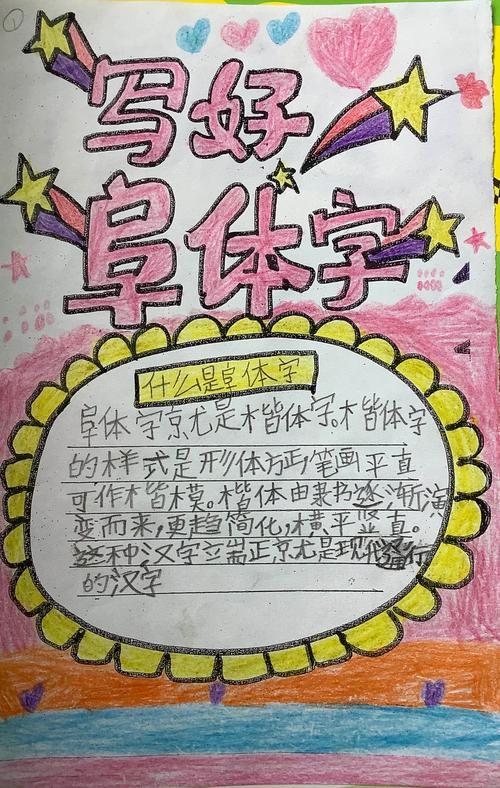 ①
写好
阜体字
什么是阜体字
阜体字京尤是楷体字。楷体字
的样式是形体方正,笔画平直
可作楷模。楷体由隶书逐渐演
变而来,更趋简化,横平竖直。
这种汉字立端正京尤是现代行
的汉字